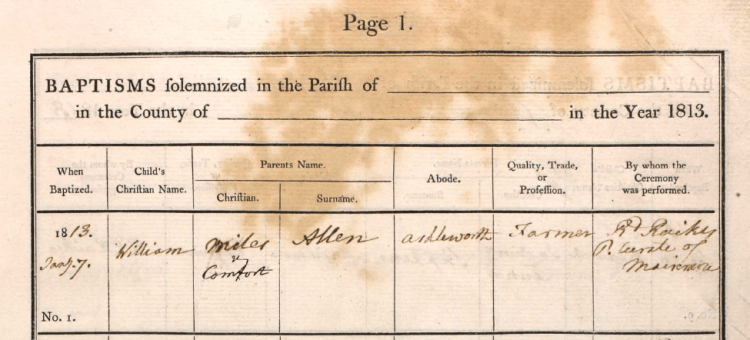 Page 1.
BAPTISMS solemnized in the Parish of
in the County of in the Year 1813.
When Baptized.
Child's Christian Name.
Parents Name.
Christian.
Surname.
Abode.
Quality, Trade, or Profession.
By whom the Ceremony was performed.
1813.
Jany 7.
No. 1.
William
Miles
&
Comfort
Allen
Ashleworth
Farmer
Rd Raikes
P. Curate of